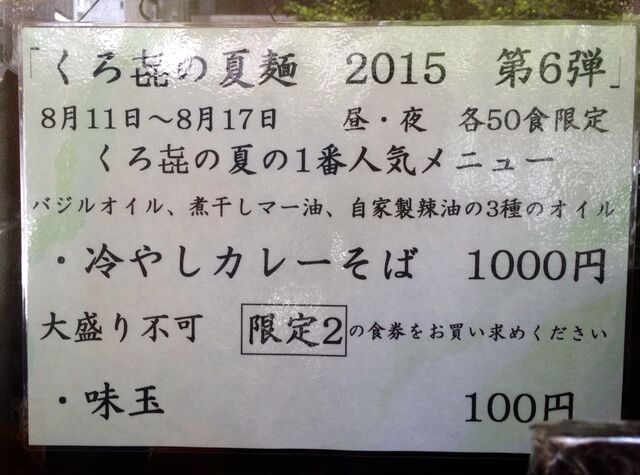 「くろ㐂の夏麺　2015　第6弾」
8月11日～8月17日　昼・夜　各50食限定
くろ㐂の夏の1番人気メニュー
バジルオイル、煮干しマー油、自家製辣油の3種のオイル
・冷やしカレーそば　1000円
大盛り不可　限定2の食券をお買い求めください
・味玉　100円